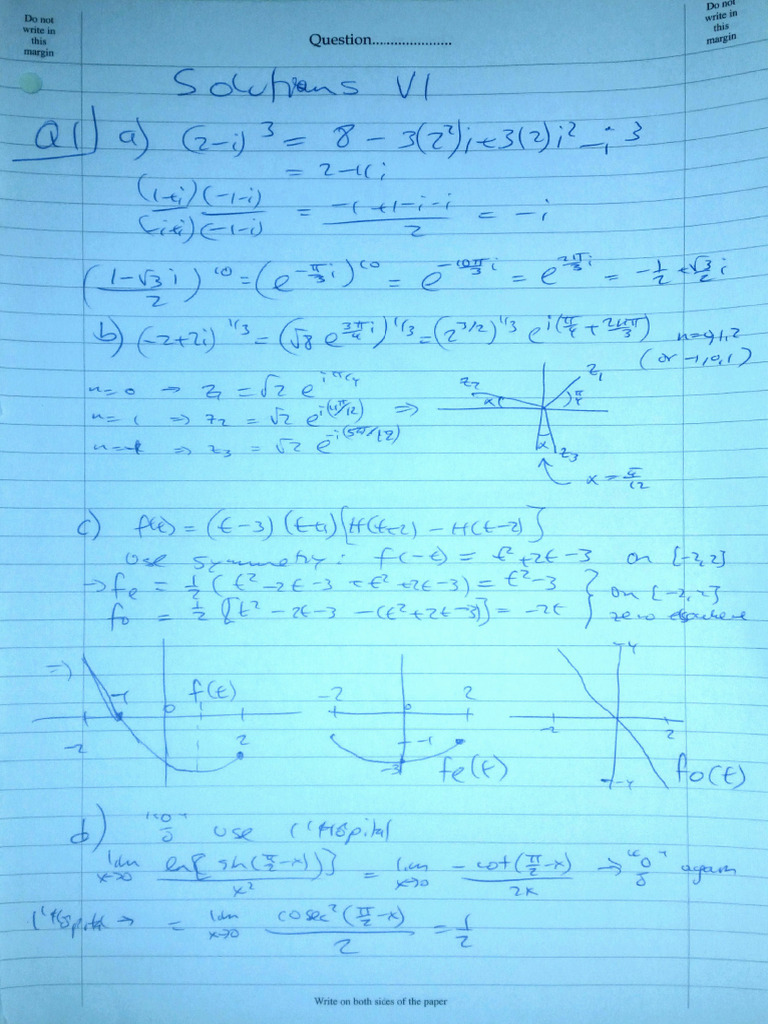 Do not write in this margin
Question.....................
Do not write in this margin
Solutions VI
Q1) a) (2-i)^3 = 8 - 3(2^2)i + 3(2)i^2 - i^3
= 2-11i
(1+i)(-1-i) / (-1+i)(-1-i) = -1+1-i-i / 2 = -i
((1-√3i)/2)^10 = (e^{-π/3 i})^10 = e^{-10π/3 i} = e^{2π/3 i} = -1/2 + √3/2 i
b) (-2+2i)^{1/3} = (√8 e^{3π/4 i})^{1/3} = (2^{3/2})^{1/3} e^{i(π/4 + 2nπ/3)} n=0,1,2
(or -1,0,1)
n=0 → z1 = √2 e^{iπ/4}
n=1 ⇒ z2 = √2 e^{i(11π/12)} ⇒
n=-1 ⇒ z3 = √2 e^{-i(5π/12)}
z2 z1
α π/4
α z3
α = π/12
c) f(t) = (t-3)(t+1)[H(t+2) - H(t-2)]
Use symmetry: f(-t) = t^2+2t-3 on [-2,2]
→ fe = 1/2 (t^2-2t-3 + t^2+2t-3) = t^2-3 } on [-2,2]
fo = 1/2 [t^2-2t-3 -(t^2+2t-3)] = -2t } zero elsewhere
⇒ -2 -1 0 2 f(t)
-2 0 2 -1 -3 fe(t)
4 -2 2 -4 fo(t)
d) "0/0" use l'Hospital
lim x→0 ln[sin(π/2-x)] / x^2 = lim x→0 -cot(π/2-x) / 2x → "0/0" again
l'Hospital → = lim x→0 cosec^2(π/2-x) / 2 = 1/2
Write on both sides of the paper